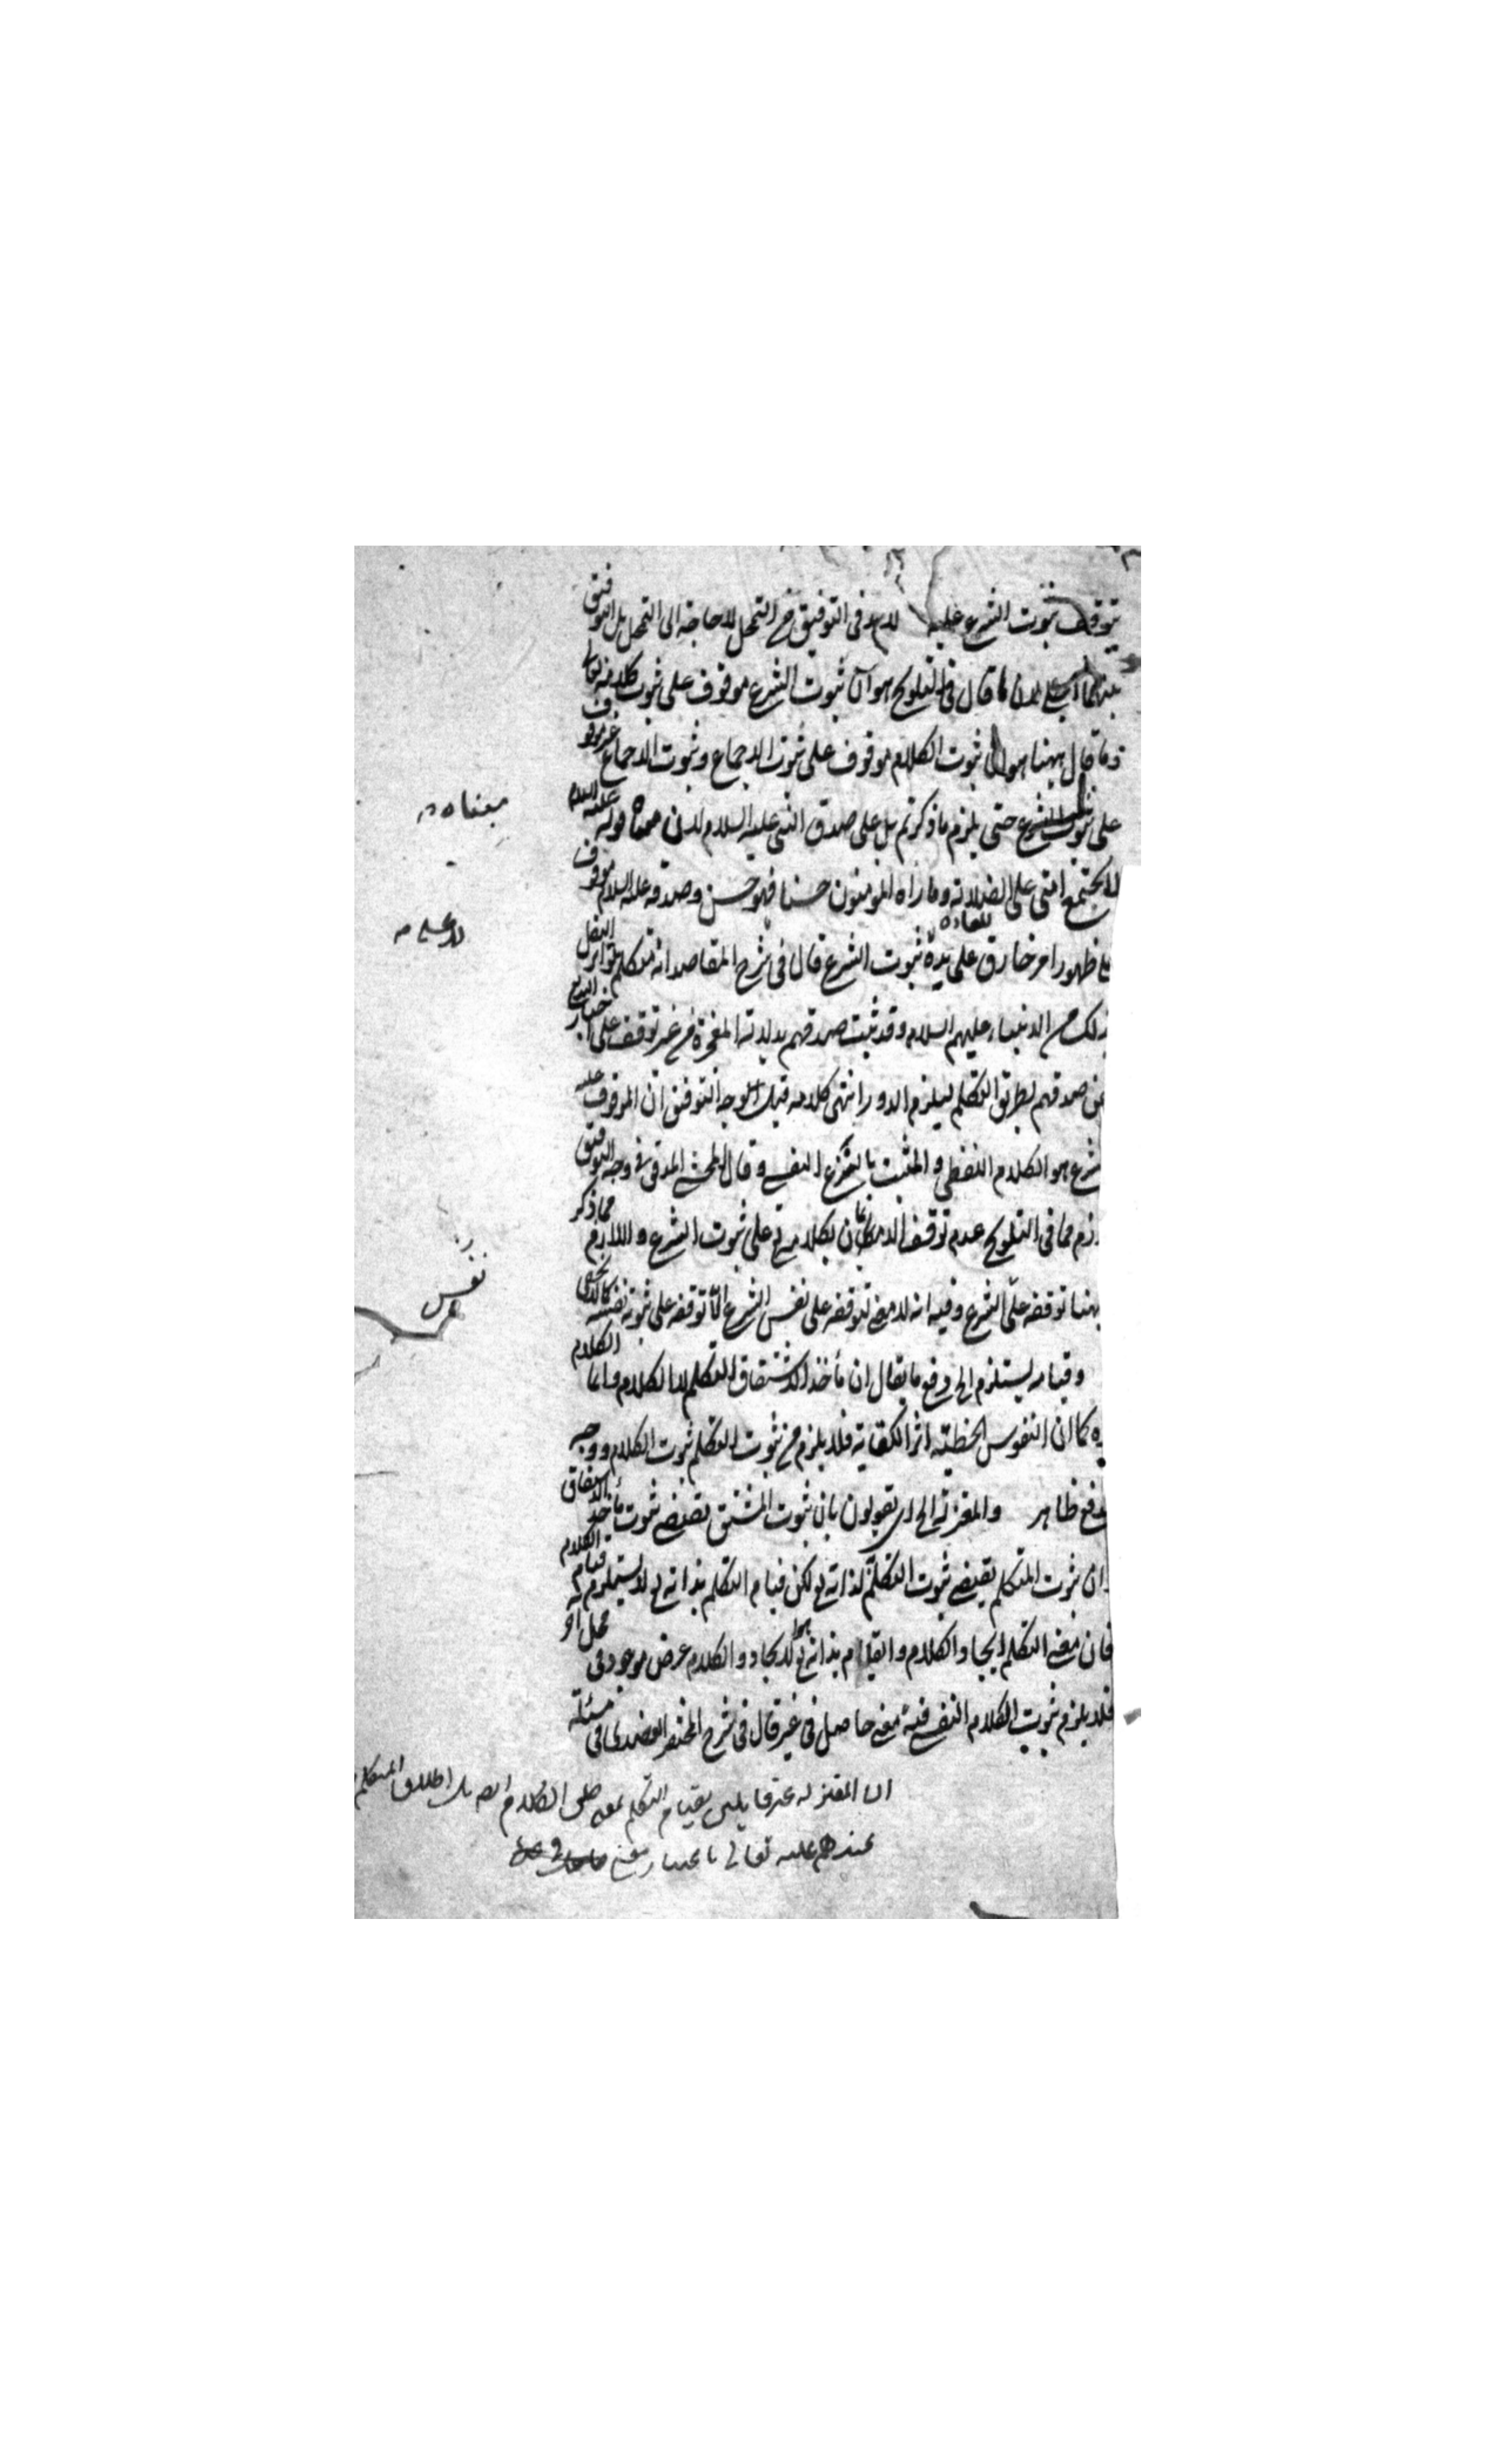 يتوقف ثبوت الشرع عليه لابد في التوفيق من التمحل لا حاجة الى التمحل بل التوفيق
بينهما لان ما قال في التلويح هو ان ثبوت الشرع موقوف على ثبوت كلامه تعالى
وما قال ههنا هو ان ثبوت الكلام موقوف على ثبوت الاجماع وثبوت الاجماع غير موقوف
على ثبوت الشرع حتى يلزم ما ذكرتم بل على صدق النبي عليه السلام لان معناه قوله عليه السلام
لا يجتمع امتي على الضلالة وما راه المؤمنون حسنا فهو حسن وصدقه عليه السلام موقوف
على ظهور امر خارق للعادة على يده ثبوت الشرع قال في شرح المقاصد انه متكلم تواتر النقل
ذلك من الانبياء عليهم السلام وقد ثبت صدقهم بدلالة المعجزة من غير توقف على اخبار الله
عن صدقهم بطريق التكلم ليلزم الدور انتهى كلامه وجه التوفيق ان الموقوف عليه
شرع هو الكلام اللفظي والمثبت بالشرع النفسي وقال المحشي المدقق في وجه التوفيق
لازم مما في التلويح عدم توقف الايمان بكلامه تع على ثبوت الشرع واللازم مما ذكر
ههنا توقفه على الشرع وفيه انه لا معنى لتوقفه على نفس الشرع الا توقفه على ثبوته نفسه كما لا يخفى
وقيامه يستلزم الخ دفع ما يقال ان مأخذ الاشتقاق التكلم لا الكلام وانما الكلام
ره كما ان النقوش الخطية اثر الكتابة فلا يلزم من ثبوت التكلم ثبوت الكلام ووجه
دفع ظاهر والمعتزلة الخ اي يقولون بان ثبوت المشتق يقتضي ثبوت مأخذ الاشتقاق
وان ثبوت المتكلم يقتضي ثبوت التكلم لذاته تع لكن قيام التكلم بذاته تع لا يستلزم قيام الكلام به
فان معنى التكلم ايجاد الكلام والقيام بذاته تع هو الايجاد والكلام عرض موجود في محل اخر
فلا يلزم ثبوت الكلام النفسي فيه معنى حاصل في غير قال في شرح المختصر العضدي في مسئلة
معناه
لا على
نفس
ان المعتزلة بقيام التكلم الكلام بل اطلاق المتكلم
عندهم عليه تعالى باعتبار معنى